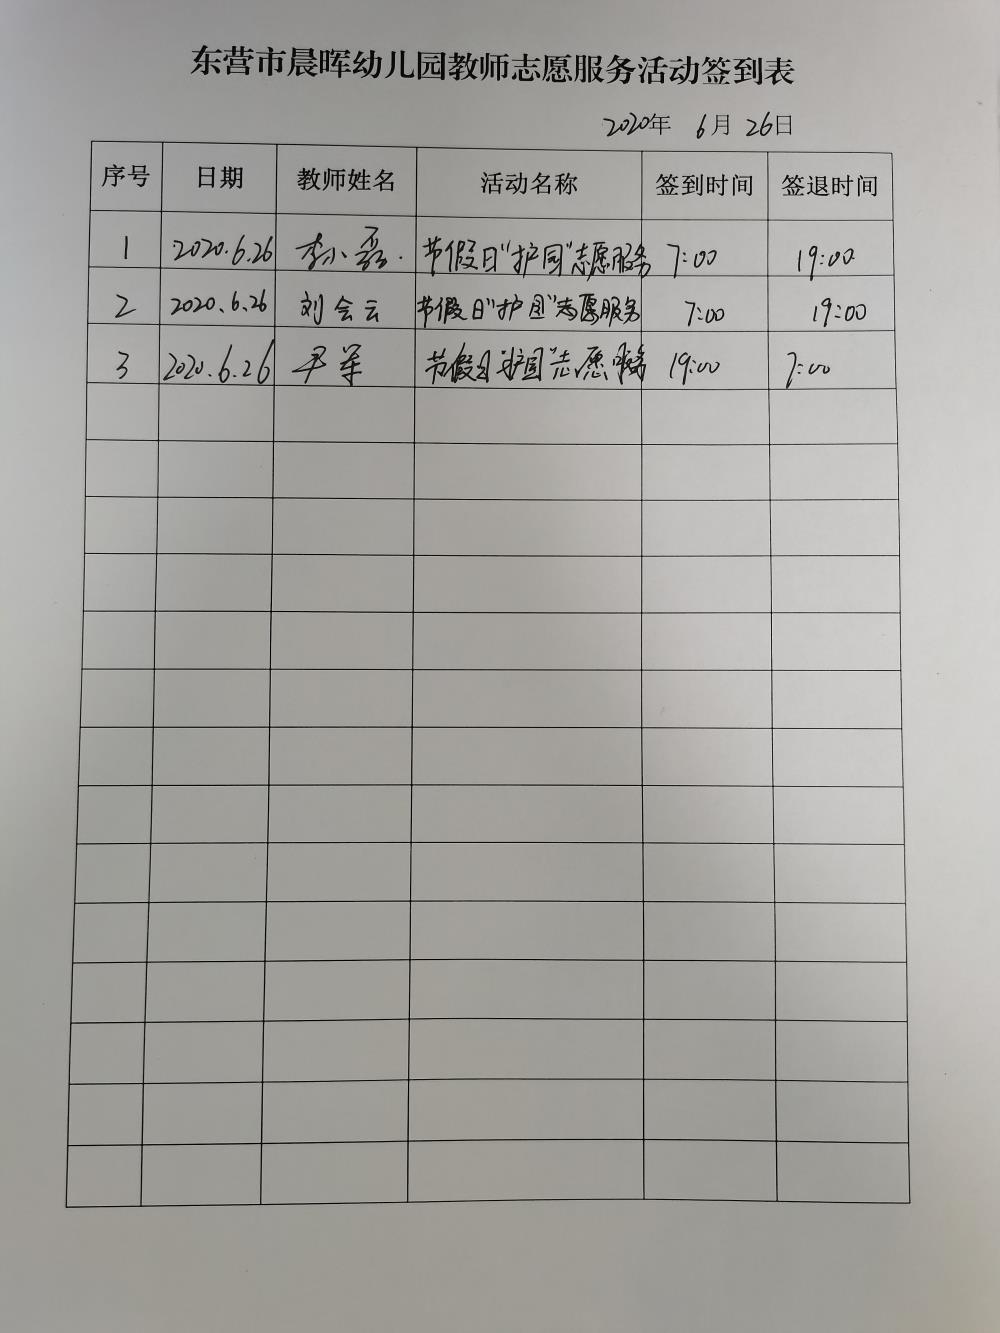 东营市晨晖幼儿园教师志愿服务活动签到表
2020年 6月 26日
序号 日期 教师姓名 活动名称 签到时间 签退时间
1 2020.6.26 李小磊. 节假日"护园"志愿服务 7:00 19:00
2 2020.6.26 刘会云 节假日"护园"志愿服务 7:00 19:00
3 2020.6.26 尹军 节假日"护园"志愿服务 19:00 7:00